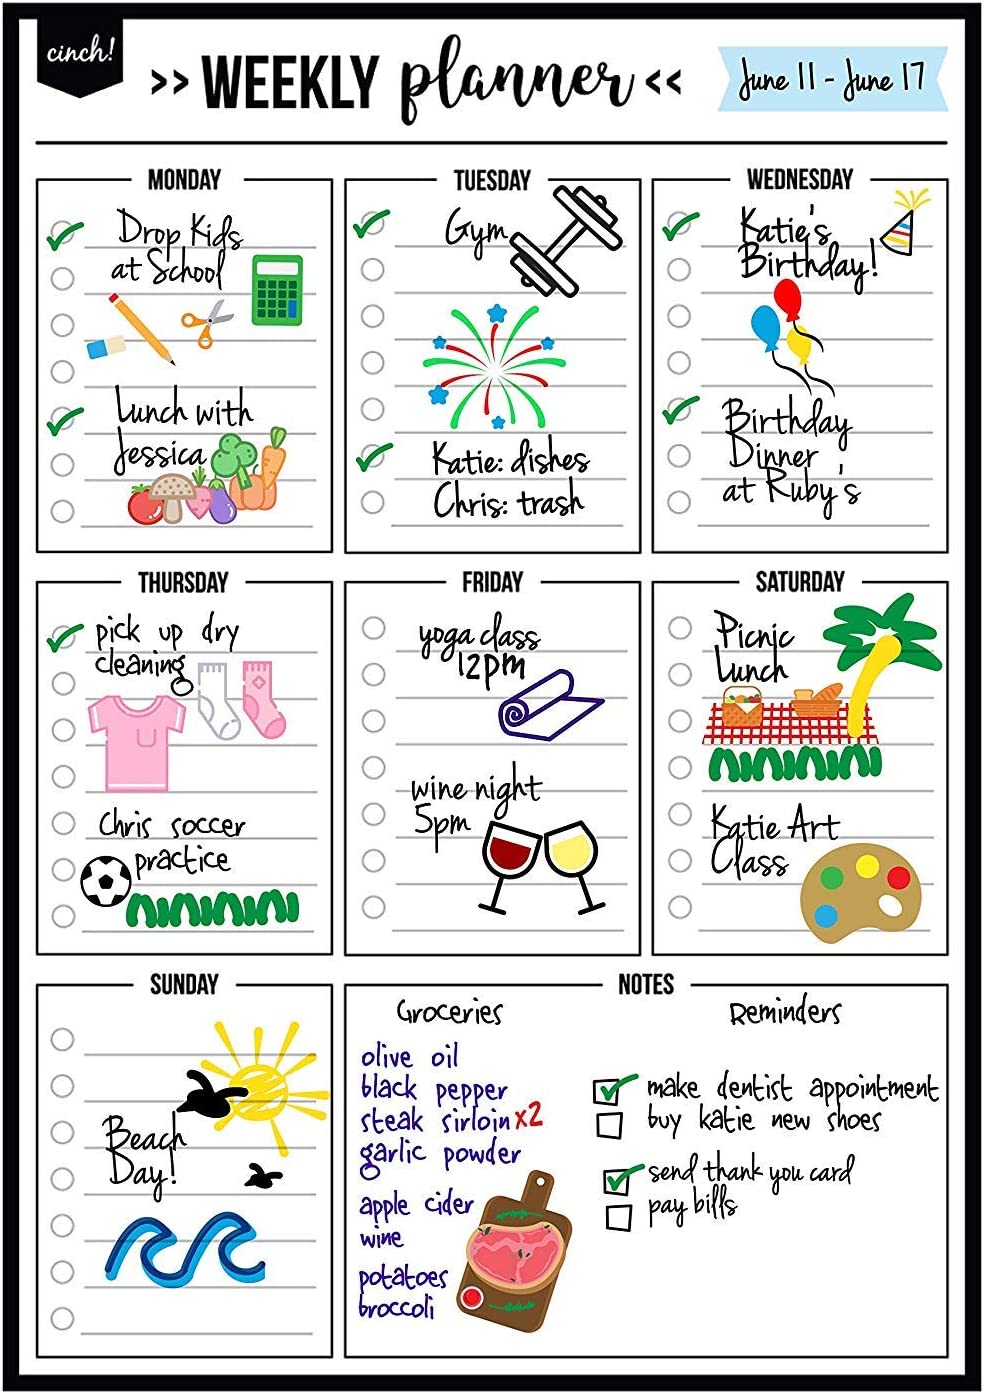 cinch!
>> WEEKLY planner <<
June 11 - June 17
MONDAY
Drop Kids
at School
Lunch with
Jessica
TUESDAY
Gym
Katie: dishes
Chris: trash
WEDNESDAY
Katie's
Birthday!
Birthday
Dinner
at Ruby's
THURSDAY
pick up dry
cleaning
Chris soccer
practice
FRIDAY
yoga class
12pm
wine night
5pm
SATURDAY
Picnic
Lunch
Katie Art
Class
SUNDAY
Beach
Day!
NOTES
Groceries
olive oil
black pepper
steak sirloin x2
garlic powder
apple cider
wine
potatoes
broccoli
Reminders
make dentist appointment
buy katie new shoes
send thank you card
pay bills